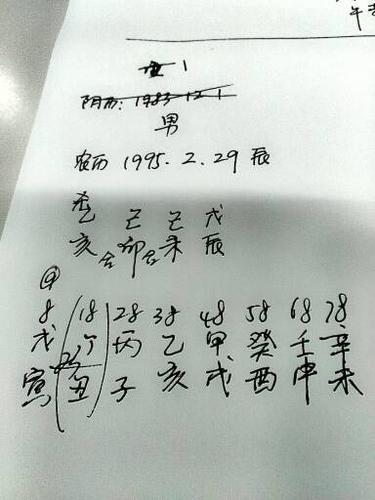 午
1
阴历: 1983 12 1
男
农历 1995. 2. 29 辰
乙 己 己 戊
亥 合 卯 合 未 辰
8 18 28 38 48 58 68 78
戊 丁 丙 乙 甲 癸 壬 辛
寅 丑 子 亥 戌 酉 申 未